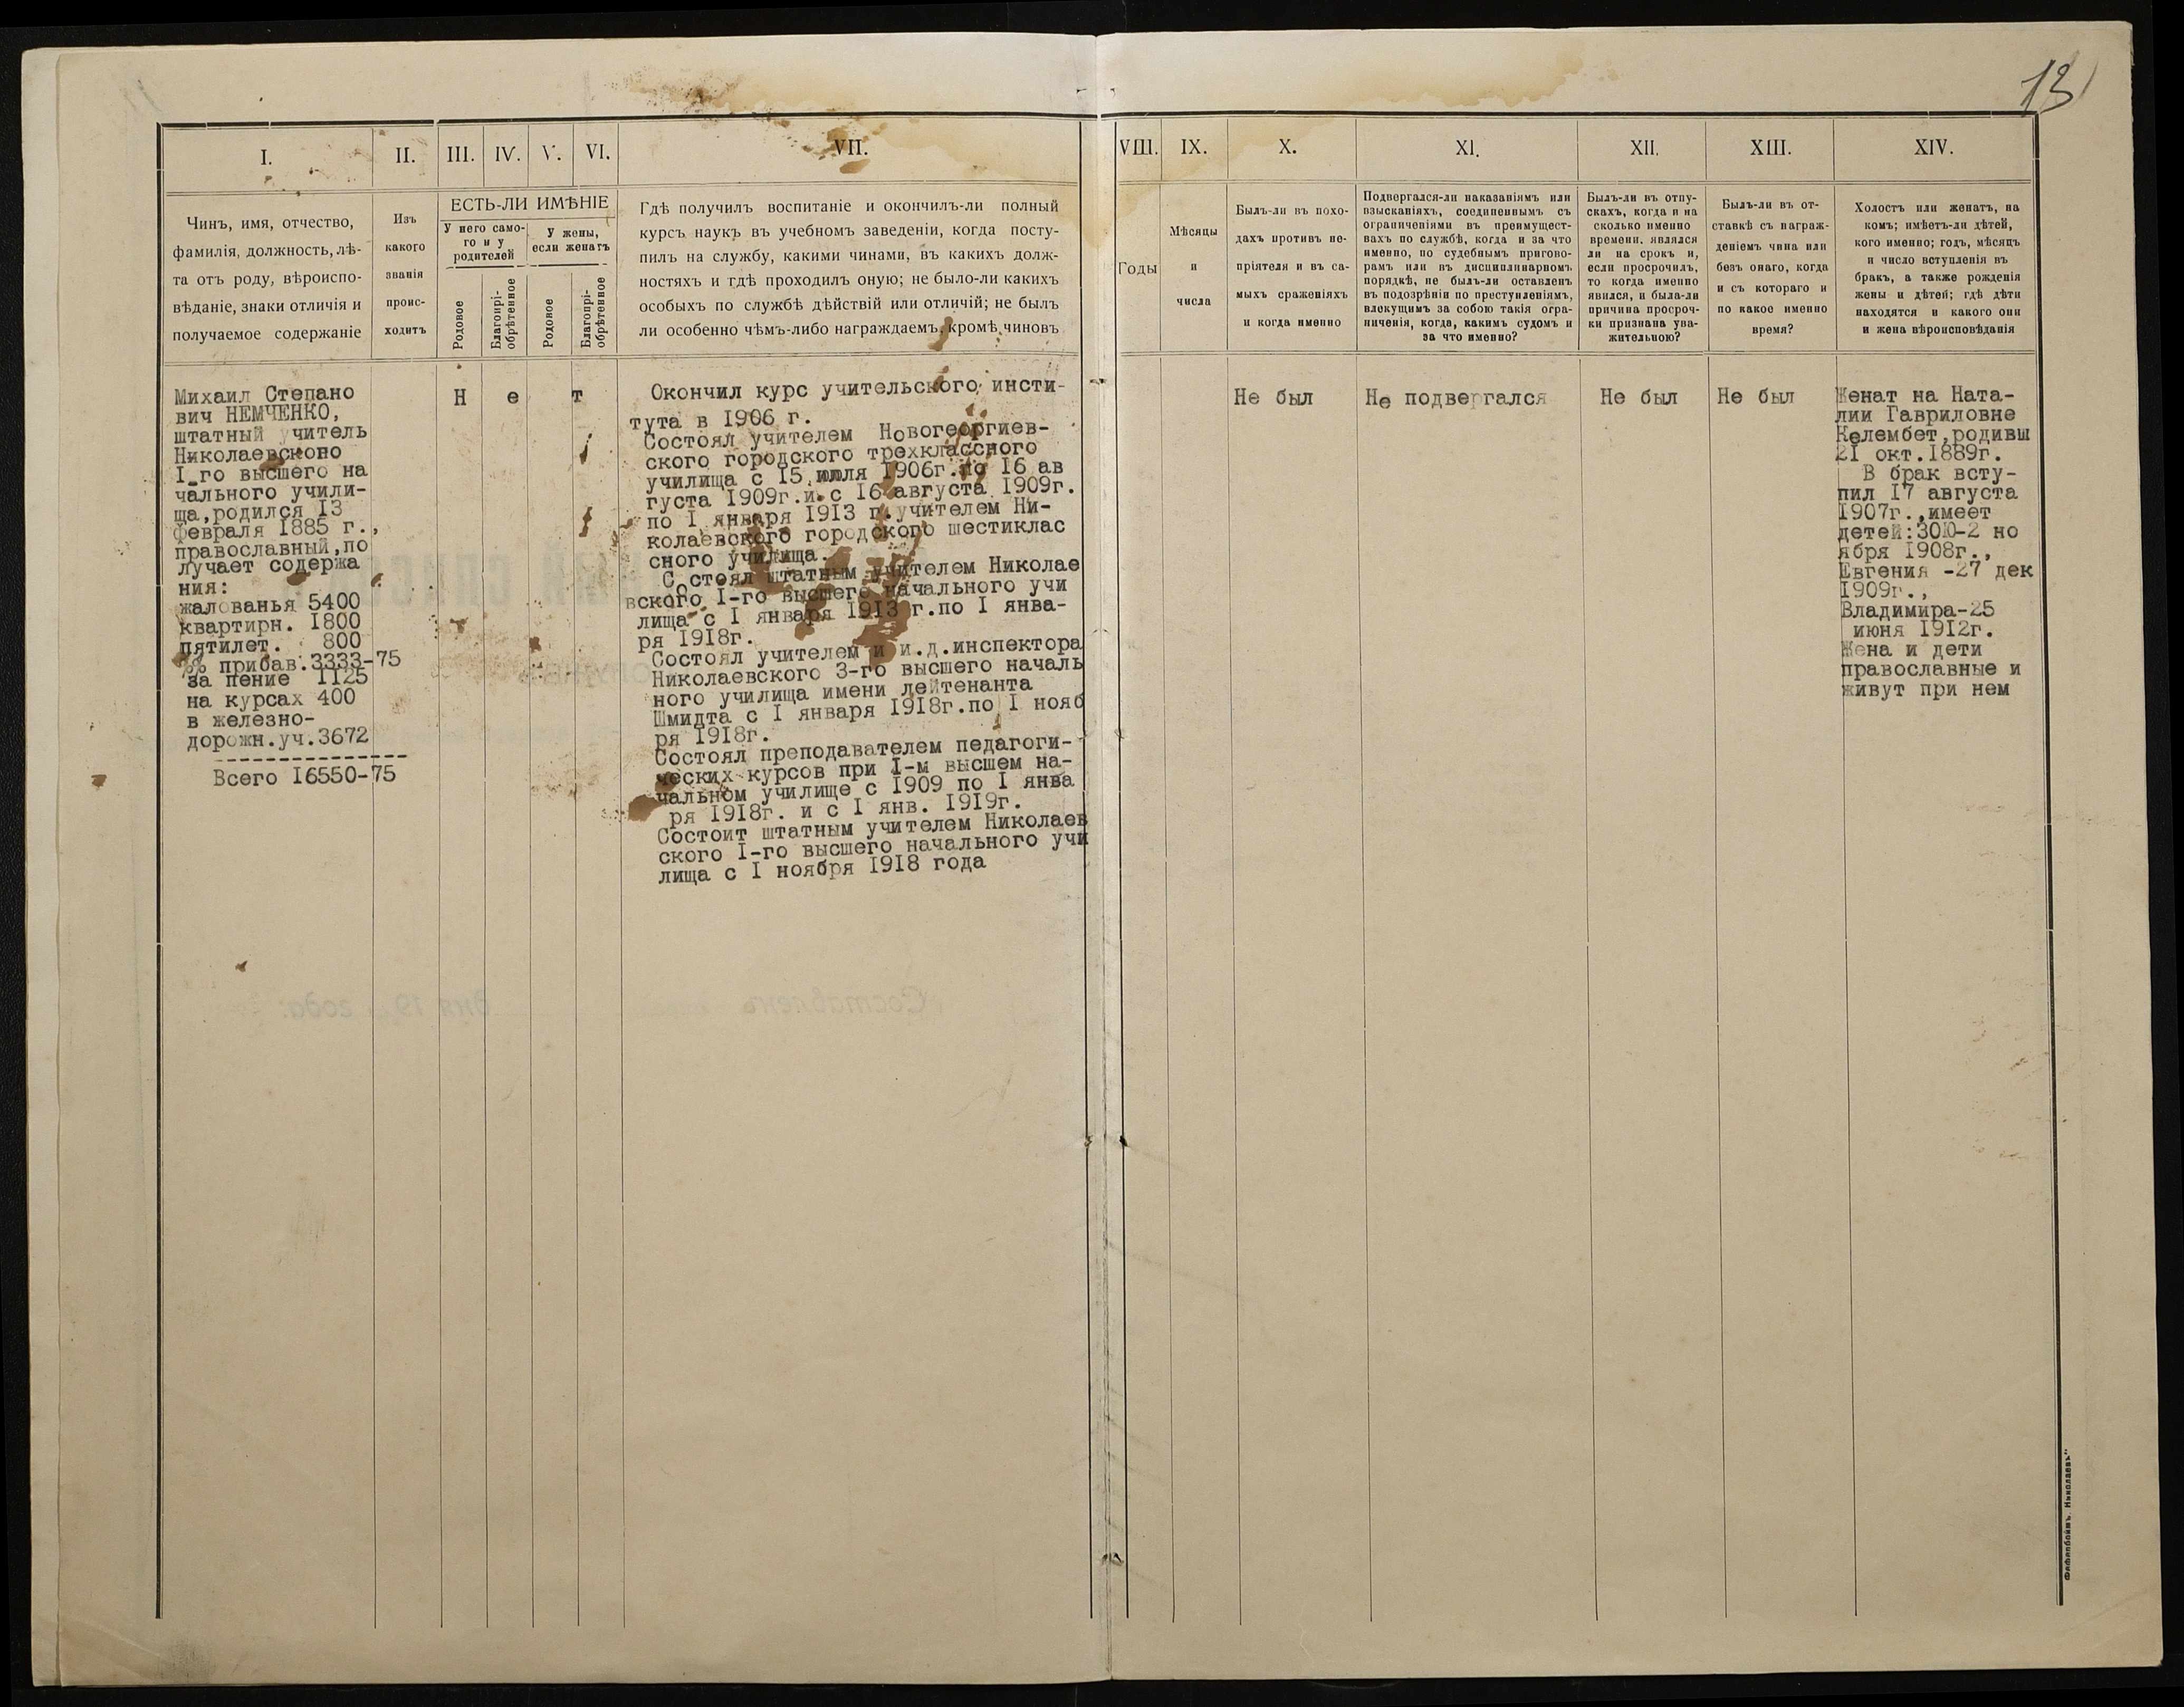 13
I.
II.
III.
IV.
V.
VI.
VII.
VIII.
IX.
X.
XI.
XII.
XIII.
XIV.
Чинъ, имя, отчество,
фамилія, должность, лѣ-
та отъ роду, вѣроиспо-
вѣданіе, знаки отличія и
получаемое содержаніе
Изъ
какого
званія
проис-
ходитъ
ЕСТЬ-ЛИ ИМѢНІЕ
У него само-
го и у
родителей
У жены,
если женатъ
Родовое
Благопрі-
обрѣтенное
Родовое
Благопрі-
обрѣтенное
Гдѣ получилъ воспитаніе и окончилъ-ли полный
курсъ наукъ въ учебномъ заведеніи, когда посту-
пилъ на службу, какими чинами, въ какихъ долж-
ностяхъ и гдѣ проходилъ оную; не было-ли какихъ
особыхъ по службѣ дѣйствій или отличій; не былъ
ли особенно чѣмъ-либо награждаемъ, кромѣ чиновъ
Годы
Мѣсяцы
и
числа
Былъ-ли въ похо-
дахъ противъ не-
пріятеля и въ са-
мыхъ сраженіяхъ
и когда именно
Подвергался-ли наказаніямъ или
взысканіяхъ, соединеннымъ съ
ограниченіями въ преимущест-
вахъ по службѣ, когда и за что
именно, по судебнымъ пригово-
рамъ или въ дисциплинарномъ
порядкѣ, не былъ-ли оставленъ
въ подозрѣніи по преступленіямъ,
влекущимъ за собою такія огра-
ниченія, когда, какимъ судомъ и
за что именно?
Былъ-ли въ отпу-
скахъ, когда и на
сколько именно
времени. являлся
ли на срокъ и,
если просрочилъ,
то когда именно
явился, и была-ли
причина просроч-
ки признана ува-
жительною?
Былъ-ли въ от-
ставкѣ съ награж-
деніемъ чина или
безъ онаго, когда
и съ котораго и
по какое именно
время?
Холостъ или женатъ, на
комъ; имѣетъ-ли дѣтей,
кого именно; годъ, мѣсяцъ
и число вступленія въ
бракъ, а также рожденія
жены и дѣтей; гдѣ дѣти
находятся и какого они
и жена вѣроисповѣданія
Михаил Степано
вич НЕМЧЕНКО,
штатный учитель
Николаевсконо
I-го высшего на
чального учили-
ща,родился 13
февраля 1885 г.,
православный,по
лучает содержа
ния:
жалованья 5400
квартирн. 1800
пятилет. 800
%% прибав.3333-75
за пение 1125
на курсах 400
в железно-
дорожн.уч.3672
Всего 16550-75
Н е т
Окончил курс учительского инсти-
тута в 1906 г.
Состоял учителем Новогеоргиев-
ского городского трехклассного
училища с 15 июля 1906г.по 16 ав
густа 1909г.и с 16 августа 1909г.
по I января 1913 г.учителем Ни-
колаевского городского шестиклас
сного училища.
Состоял штатным учителем Николае
вского I-го высшего начального учи
лища с I января 1913 г.по I янва-
ря 1918г.
Состоял учителем и и.д.инспектора
Николаевского 3-го высшего началь
ного училища имени лейтенанта
Шмидта с I января 1918г.по I нояб
ря 1918г.
Состоял преподавателем педагоги-
ческих курсов при I-м высшем на-
чальном училище с 1909 по I янва
ря 1918г. и с I янв. 1919г.
Состоит штатным учителем Николаев
ского I-го высшего начального учи
лища с I ноября 1918 года
Не был
Не подвергался
Не был
Не был
Женат на Ната-
лии Гавриловне
Келембет,родивш
21 окт.1889г.
В брак всту-
пил 17 августа
1907г.,имеет
детей:ЗОЮ-2 но
ября 1908г.,
Евгения -27 дек
1909г.,
Владимира-25
июня 1912г.
Жена и дети
православные и
живут при нем